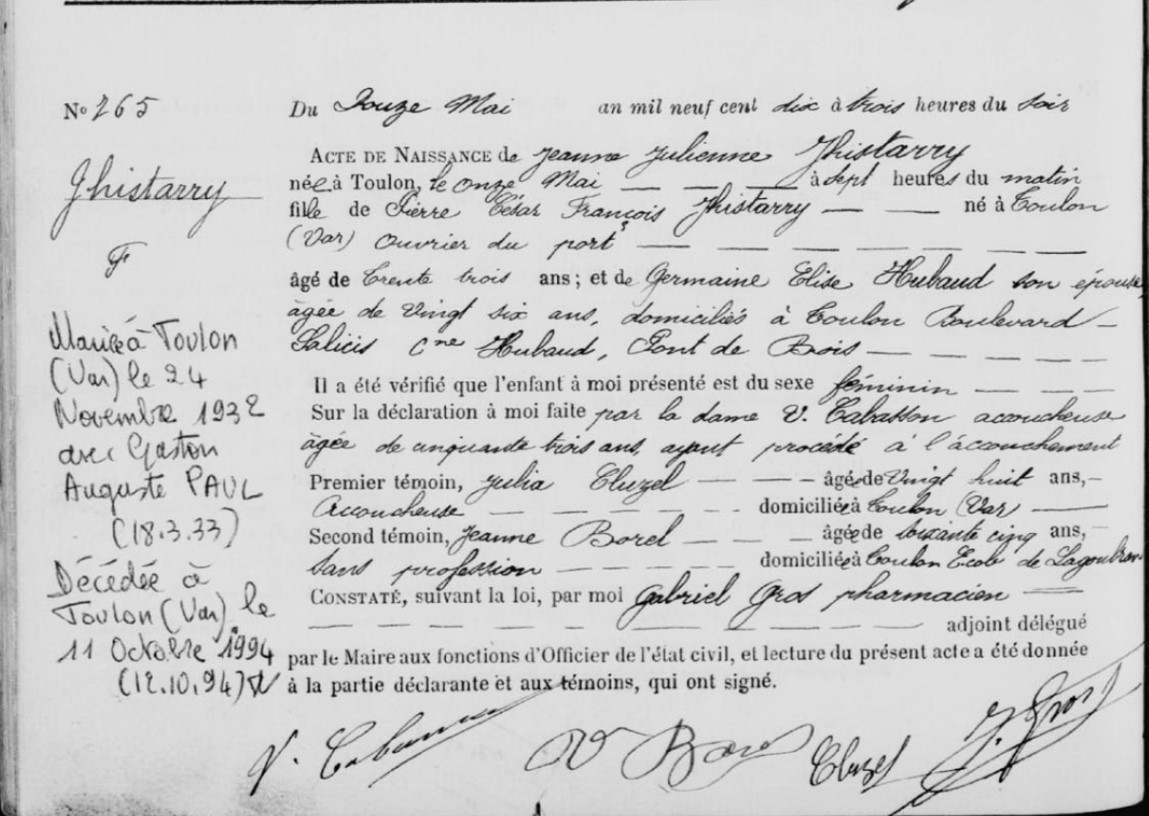 N° 265
Ghistarry
F
Mariée à Toulon
(Var) le 24
Novembre 1932
avec Gaston
Auguste PAUL
(18.3.33)
Décédée à
Toulon (Var) le
11 Octobre 1994
(12.10.94)
Du Douze Mai an mil neuf cent dix à trois heures du soir
ACTE DE NAISSANCE de Jeanne Julienne Ghistarry
née à Toulon, le onze Mai — — — à sept heures du matin
fille de Pierre César François Ghistarry — — né à Toulon
(Var) ouvrier du port — — — — — — — —
âgé de trente trois ans ; et de Germaine Elise Hubaud son épouse,
âgée de vingt six ans, domiciliés à Toulon Boulevard —
Salicis Cne Hubaud, Pont de Bois — — — — —
Il a été vérifié que l'enfant à moi présenté est du sexe féminin — — —
Sur la déclaration à moi faite par la dame V. Cabasson accoucheuse
âgée de cinquante trois ans, ayant procédé à l'accouchement
Premier témoin, Julia Cluzel — — — âgée de vingt huit ans, —
Accoucheuse — — — — — domiciliée à Toulon (Var) —
Second témoin, Jeanne Borel — — — âgée de soixante cinq ans, —
sans profession — — — — domiciliée à Toulon Ecole de Lagoubran
CONSTATÉ, suivant la loi, par moi Gabriel Gros pharmacien —
— — — — — — — — — adjoint délégué
par le Maire aux fonctions d'Officier de l'état civil, et lecture du présent acte a été donnée
à la partie déclarante et aux témoins, qui ont signé.
V. Cabasson Vve Borel Cluzel G. Gros